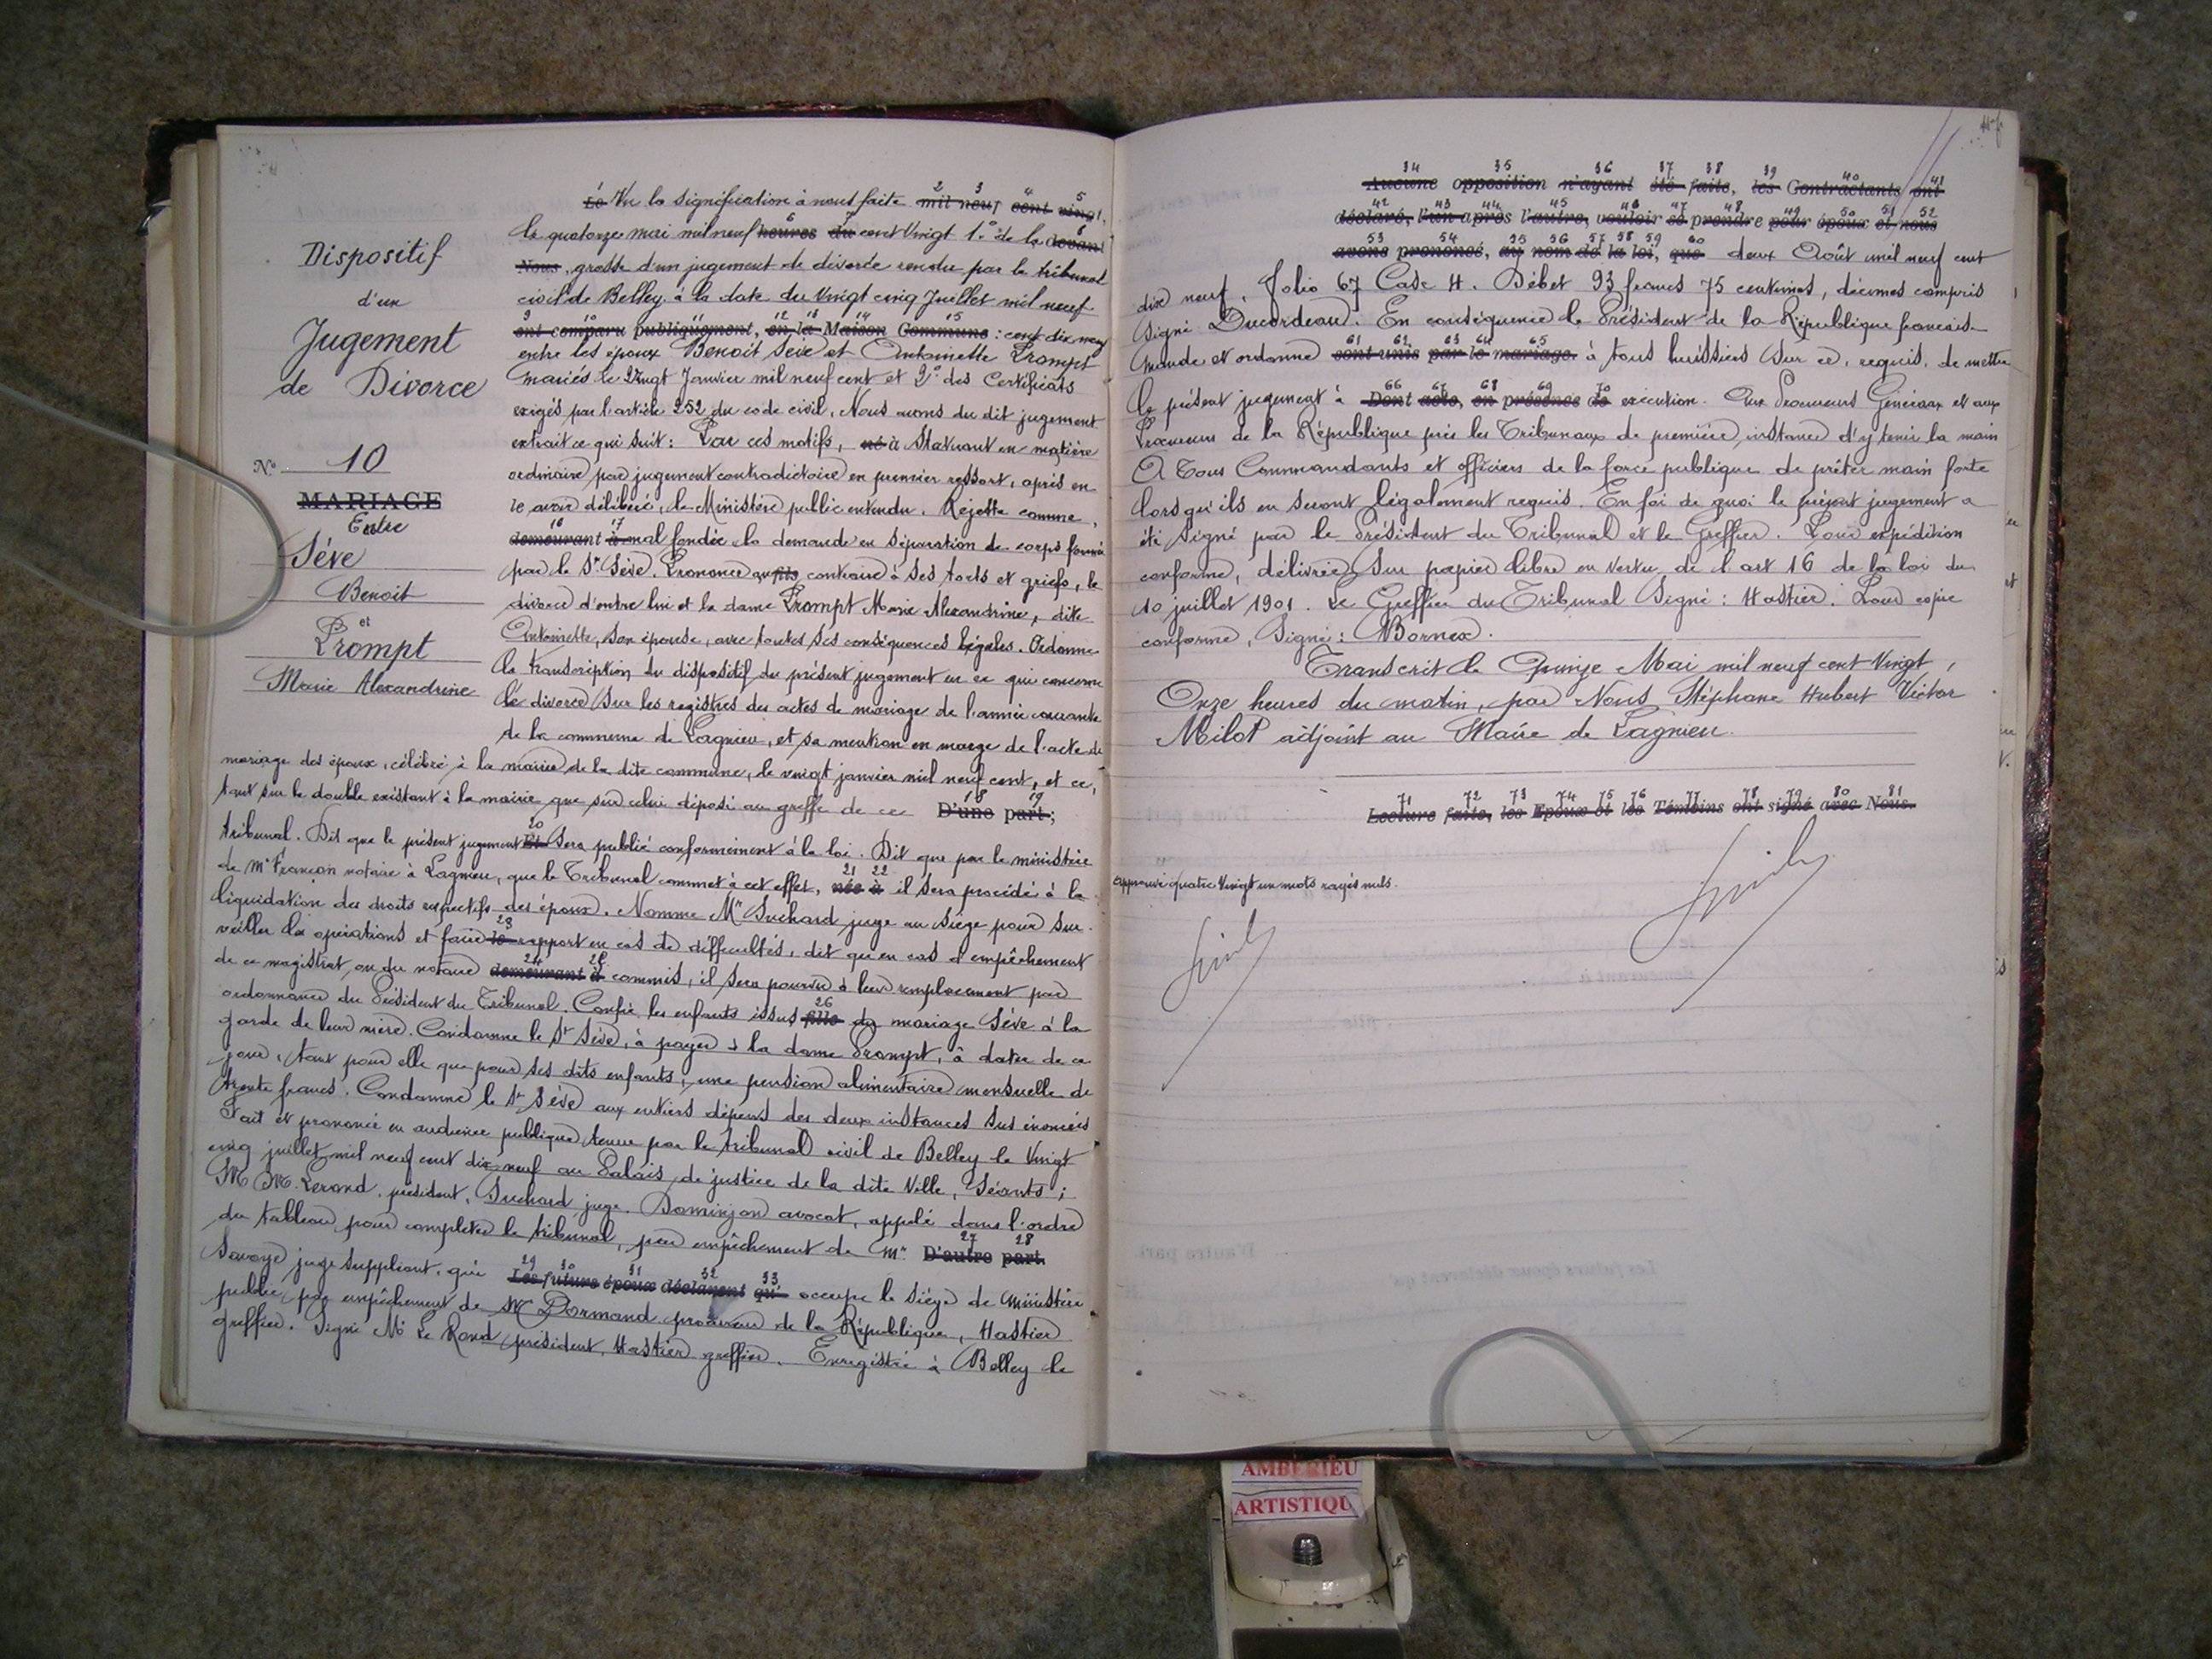 Dispositif
d'un
Jugement
de Divorce
N° 10
MARIAGE
Entre
Sève
Benoit
et
Prompt
Marie Alexandrine
Le Vu la signification à nous faite mil neuf cent vingt,
le quatorze mai mil neuf heures du cent vingt 1° de la devant
Nous, grosse d'un jugement de divorce rendu par le tribunal
civil de Belley à la date du vingt cinq Juillet mil neuf
ont comparu publiquement, en la Maison Commune : cent dix neuf
entre les époux Benoit Sève et Antoinette Prompt
mariés le vingt Janvier mil neuf cent et 2° des Certificats
exigés par l'article 252 du code civil, Nous avons du dit jugement
extrait ce qui suit : Par ces motifs, né à Statuant en matière
ordinaire par jugement contradictoire en premier ressort, après en
avoir délibéré, le Ministère public entendu, Rejette comme
demeurant à mal fondée la demande en séparation de corps formée
par le Sr Sève. Prononce au fils contraire à ses torts et griefs, le
divorce d'entre lui et la dame Prompt Marie Alexandrine, dite
Antoinette, son épouse, avec toutes ses conséquences légales. Ordonne
la transcription du dispositif du présent jugement en ce qui concerne
le divorce sur les registres des actes de mariage de l'année courante
de la commune de Lagnieu, et sa mention en marge de l'acte de
mariage des époux, célébré à la mairie de la dite commune, le vingt janvier mil neuf cent, et ce,
tant sur le double existant à la mairie que sur celui déposé au greffe de ce D'une part ;
tribunal. Dit que le présent jugement Et sera publié conformément à la loi. Dit que par le ministère
de Me Francon notaire à Lagnieu, que le Tribunal commet à cet effet, née à il sera procédé à la
liquidation des droits respectifs des époux. Nomme Mr Suchard juge au siège pour sur-
veiller les opérations et faire le rapport en cas de difficultés, dit qu'en cas d'empêchement
de ce magistrat ou du notaire demeurant à commis, il sera pourvu à leur remplacement par
ordonnance du Président du Tribunal. Confie les enfants issus fille du mariage Sève à la
garde de leur mère. Condamne le Sr Sève, à payer à la dame Prompt, à dater de ce
jour, tant pour elle que pour ses dits enfants, une pension alimentaire mensuelle de
trente francs. Condamne le Sr Sève aux entiers dépens des deux instances sus énoncées
Fait et prononcé en audience publique tenue par le tribunal civil de Belley le Vingt
cinq juillet mil neuf cent dix-neuf au Palais de justice de la dite Ville, Séants ;
M M. Lerond, président, Suchard juge. Dominjon avocat, appelé dans l'ordre
du tableau pour compléter le tribunal, par empêchement de Mr D'autre part.
Savoye juge suppléant, qui Les futurs époux déclarent qu' occupe le siège de Ministère
public par empêchement de Mr Dormand procureur de la République, Hastier
greffier. Signé Mr Le Rond président, Hastier greffier. Enregistré à Belley le
Aucune opposition n'ayant été faite, les Contractants ont
déclaré, l'un après l'autre, vouloir se prendre pour époux et nous
avons prononcé, au nom de la loi, que deux Août mil neuf cent
dix neuf, Folio 67 Case H. Débet 93 francs 75 centimes, décimes compris
signé Ducordeau. En conséquence le Président de la République française
mande et ordonne sont unis par le mariage. à tous huissiers sur ce, requis, de mettre
le présent jugement à Dont acte, en présence de exécution. Aux Procureurs Généraux et aux
Procureurs de la République près les Tribunaux de première instance d'y tenir la main
A Tous Commandants et officiers de la force publique de prêter main forte
lorsqu'ils en seront légalement requis. En foi de quoi le présent jugement a
été signé par le Président du Tribunal et le Greffier. Pour expédition
conforme, délivrée sur papier libre en vertu de l'art 16 de la loi du
10 juillet 1901. Le Greffier du Tribunal Signé : Hastier. Pour copie
conforme, Signé : Bornex.
Transcrit le Quinze Mai mil neuf cent Vingt,
Onze heures du matin, par Nous Stéphane Hubert Victor
Milot adjoint au Maire de Lagnieu.
Lecture faite, les Epoux et les Témoins ont signé avec Nous.
Approuvé quatre Vingt un mots rayés nuls.
AMBÉRIEU
ARTISTIQU